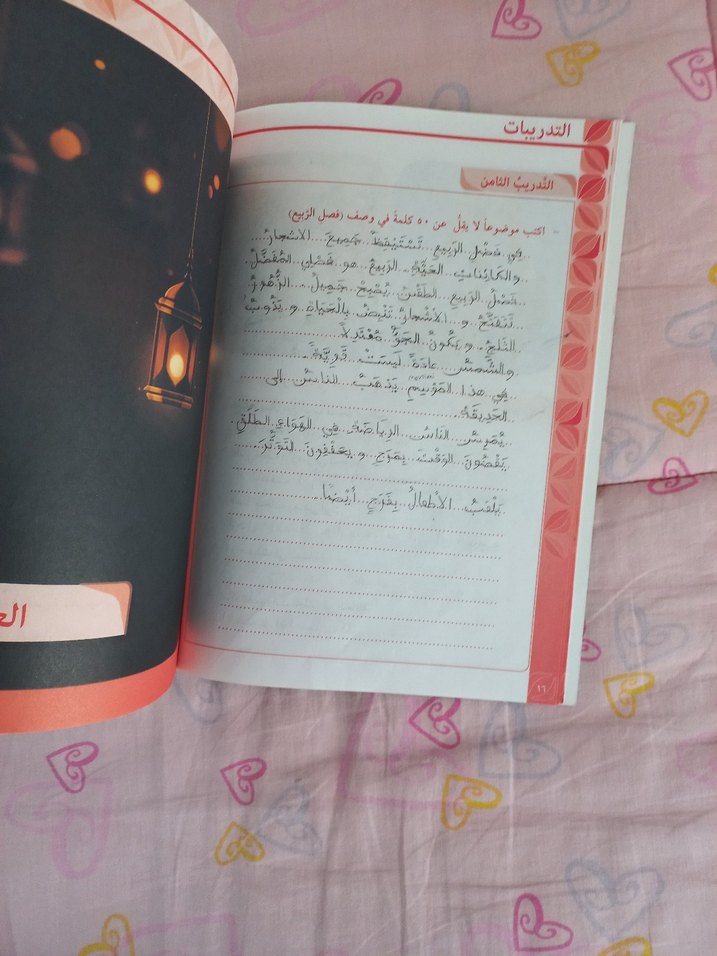 التدريبات
التدريبُ الثامن
- اكتب موضوعاً لا يقلُ عن ٥٠ كلمةً في وصف (فصل الرَبيع)
في فَصْلِ الرَبيعِ تَسْتَيْقِظُ جَميعَ الأشجارُ
والكَائِناتِ الحَيَّةِ الرَبيعُ هو فَصْلِي المُفَضَّلُ
فَصْلُ الرَبيعِ الطَقْسُ يُصْبِحُ جَميلٌ الزُّهُورُ
تَتَفَتَّحُ و الأشْجارُ تَنْبِضُ بِالْحَيَاةِ و يَذُوبُ
الثَلجُ و يَكُونُ الجَوُّ مُعْتَدِلاً
والشَمْسُ عادَةً لَيسَتْ قَوِيَّةً
في هذا المَوْسِمِ يَذهَبُ الناسُ إلى
الحَديقَةُ
يُمَرِسُ النَاسُ الرِياضَةُ في الهَوَاءِ الطَلَقِ
يَقْضُونَ الوَقْتَ بِمَرَحٍ و يخففونَ التَوَتُّرَ
يَلْعَبُ الأطْفالُ بِفَرَحٍ أيْضًا
١٦